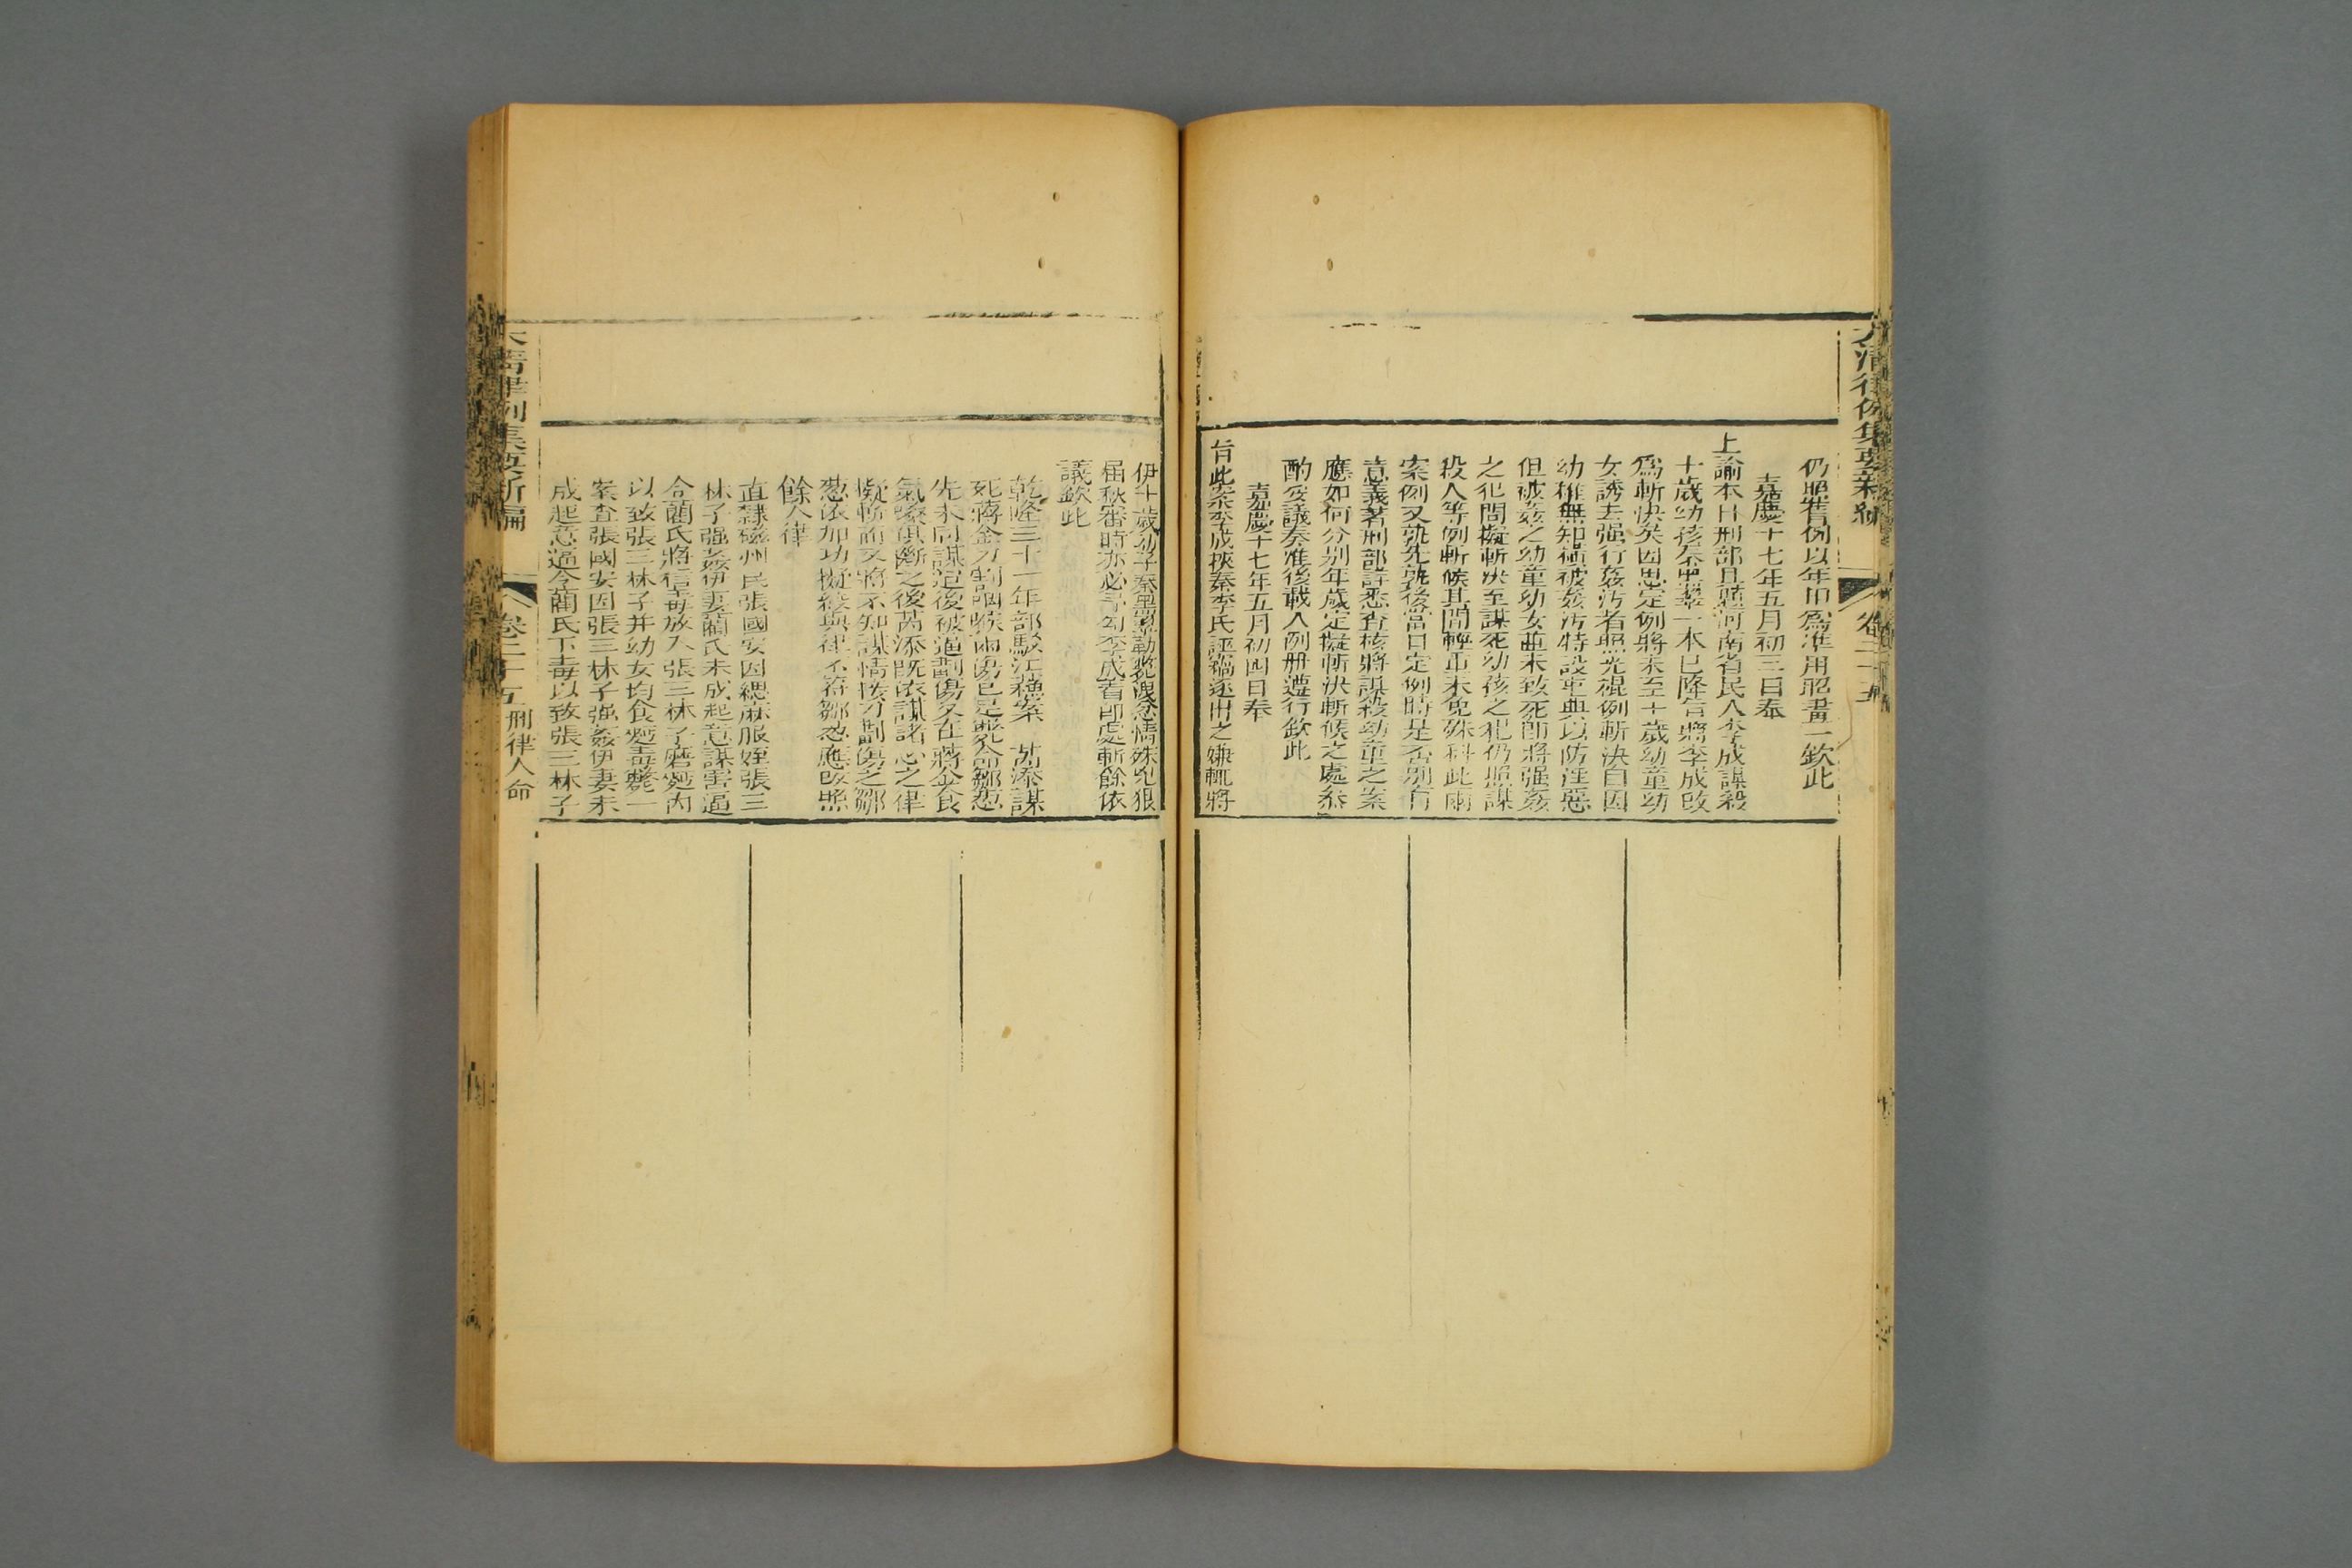 大清律例集要新編
卷二十五
仍照舊例以年 為準用昭畫一欽此
嘉慶十七年五月初三日奉
上諭本日刑部具題河南省民人李成謀殺
十歲幼孩秦黑 一本已降旨將李成改
為斬決矣因思定例將未至十歲幼童幼
女誘去强行姦污者照光棍例斬決自因
幼稚無知橫被姦污特設重典以防淫惡
但被姦之幼童幼女並未致死即將强姦
之犯問擬斬決至謀死幼孩之犯仍照謀
殺人等例斬候其間輕重未免殊科此兩
案例又孰先孰後當日定例時是否別有
意義著刑部詳悉查核將謀殺幼童之案
應如何分別年歲定擬斬決斬候之處叅
酌妥議奏准後載入例册遵行欽此
嘉慶十七年五月初四日奉
旨此案李成挾秦李氏誣竊逐出之嫌輒將
伊十歲幼子秦黑 勒斃洩忿情殊兇狠
屆秋審時亦必予勾李成着即處斬餘依
議欽此
乾隆三十一年部駁江蘇案 芮添謀
死蔣金刀割咽喉兩傷已足斃命鄒惷
先未同謀迨後被逼劃傷又在蔣金食
氣嗓俱斷之後芮添既依謀諸心之律
擬斬而又將不知謀情後刀劃傷之鄒
惷依加功擬絞與律不符鄒惷應改照
餘人律
直隸磁州民張國安因緦麻服姪張三
林子强姦伊妻藺氏未成起意謀害逼
令藺氏將信毒放入張三林子磨麵內
以致張三林子并幼女均食麵毒斃一
案查張國安因張三林子强姦伊妻未
成起意逼令藺氏下毒以致張三林子
大清律例集要新編
卷二十五 刑律人命